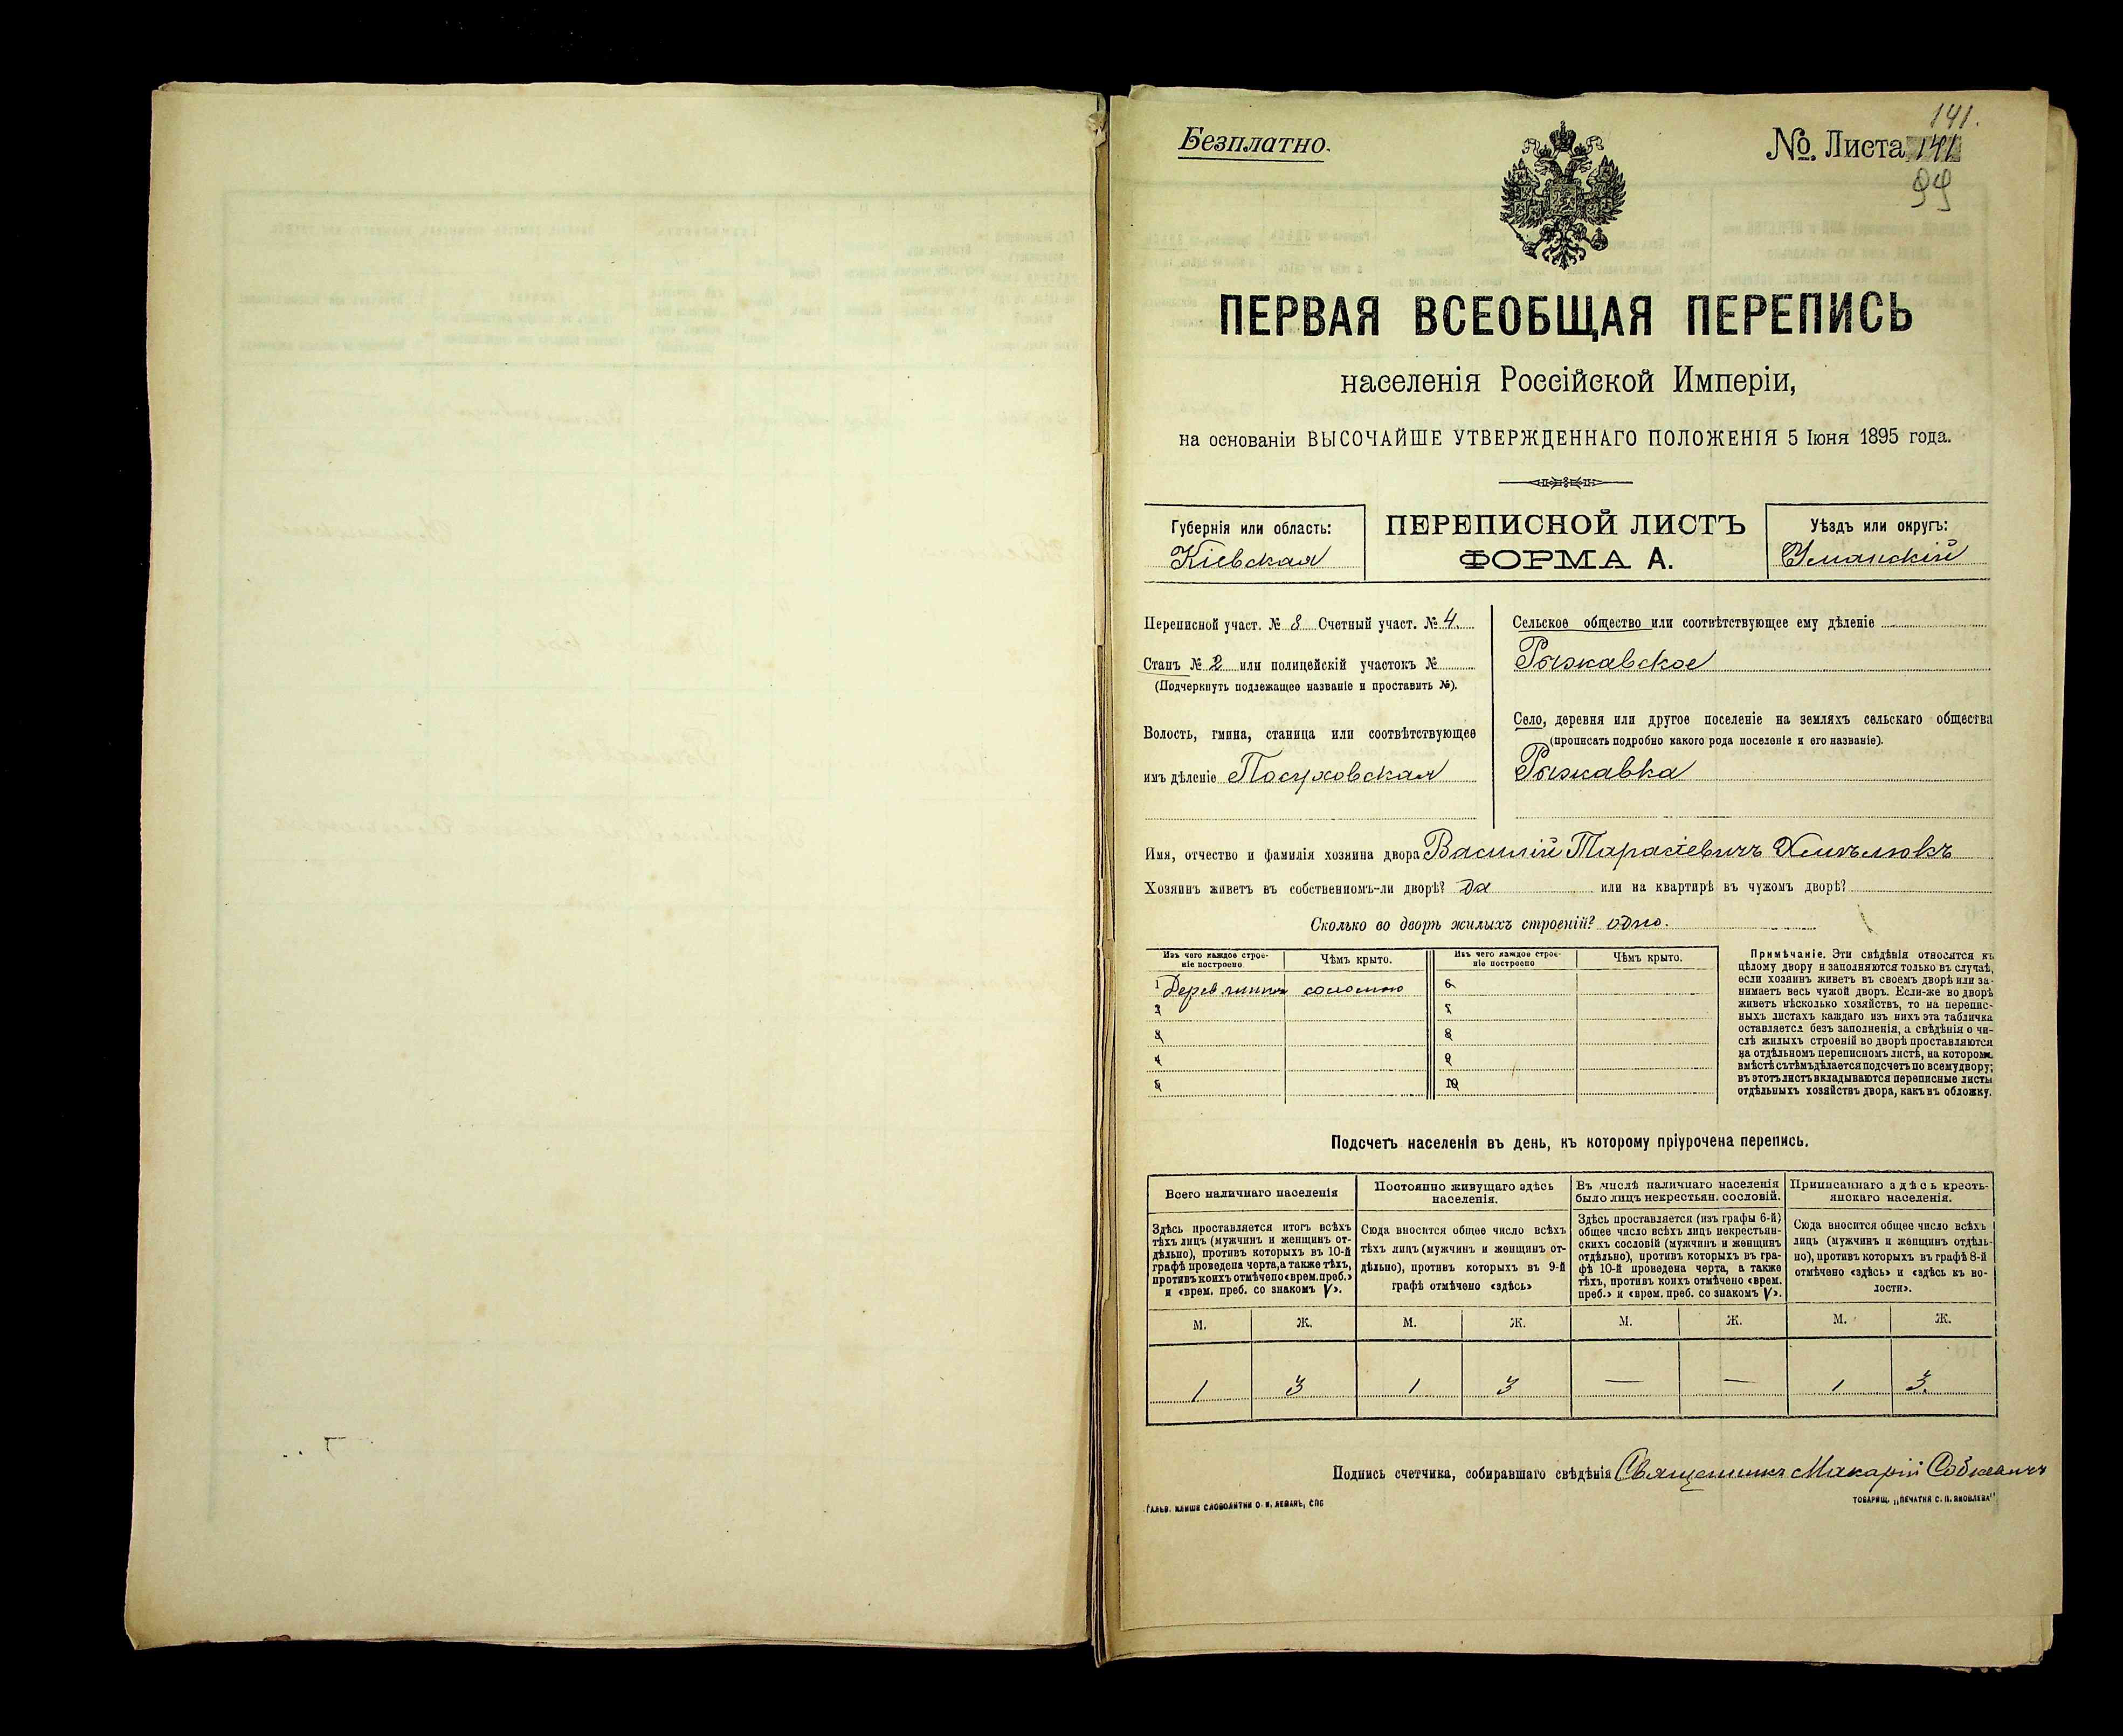 141.
Безплатно.
№. Листа 141
99
ПЕРВАЯ ВСЕОБЩАЯ ПЕРЕПИСЬ
населенія Россійской Имперіи,
на основаніи ВЫСОЧАЙШЕ УТВЕРЖДЕННАГО ПОЛОЖЕНІЯ 5 Іюня 1895 года.
Губернія или область:
Кіевская
ПЕРЕПИСНОЙ ЛИСТЪ
ФОРМА А.
Уѣздъ или округъ:
Уманскій
Переписной участ. № 8 Счетный участ. № 4.
Станъ № 2 или полицейскій участокъ №
(Подчеркнуть подлежащее названіе и проставить №).
Волость, гмина, станица или соотвѣтствующее
имъ дѣленіе Посуховская
Сельское общество или соотвѣтствующее ему дѣленіе
Рыжавское
Село, деревня или другое поселеніе на земляхъ сельскаго общества
(прописать подробно какого рода поселеніе и его названіе).
Рыжавка
Имя, отчество и фамилія хозяина двора Василій Тарасіевичъ
Хозяинъ живетъ въ собственномъ-ли дворѣ? да или на квартирѣ въ чужомъ дворѣ?
Сколько во дворѣ жилыхъ строеній? одно.
Изъ чего каждое строе-
ніе построено
Чѣмъ крыто.
Изъ чего каждое строе-
ніе построено
Чѣмъ крыто.
1 соломою 6
2 7
3 8
4 9
5 10
Примѣчаніе. Эти свѣдѣнія относятся къ
цѣлому двору и заполняются только въ случаѣ,
если хозяинъ живетъ въ своемъ дворѣ или за-
нимаетъ весь чужой дворъ. Если-же во дворѣ
живетъ нѣсколько хозяйствъ, то на перепис-
ныхъ листахъ каждаго изъ нихъ эта табличка
оставляется безъ заполненія, а свѣдѣнія о чи-
слѣ жилыхъ строеній во дворѣ проставляются
на отдѣльномъ переписномъ листѣ, на которомъ
вмѣстѣ съ тѣмъ дѣлается подсчетъ по всему двору;
въ этотъ листъ вкладываются переписные листы
отдѣльныхъ хозяйствъ двора, какъ въ обложку.
Подсчетъ населенія въ день, къ которому пріурочена перепись.
Всего наличнаго населенія
Здѣсь проставляется итогъ всѣхъ
тѣхъ лицъ (мужчинъ и женщинъ от-
дѣльно), противъ которыхъ въ 10-й
графѣ проведена черта, а также тѣхъ,
противъ коихъ отмѣчено «врем. преб.»
и «врем. преб. со знакомъ V».
Постоянно живущаго здѣсь
населенія.
Сюда вносится общее число всѣхъ
тѣхъ лицъ (мужчинъ и женщинъ от-
дѣльно), противъ которыхъ въ 9-й
графѣ отмѣчено «здѣсь»
Въ числѣ наличнаго населенія
было лицъ некрестьян. сословій.
Здѣсь проставляется (изъ графы 6-й)
общее число всѣхъ лицъ некрестьян-
скихъ сословій (мужчинъ и женщинъ
отдѣльно), противъ которыхъ въ гра-
фѣ 10-й проведена черта, а также
тѣхъ, противъ коихъ отмѣчено «врем.
преб.» и «врем. преб. со знакомъ V».
Приписаннаго здѣсь кресть-
янскаго населенія.
Сюда вносится общее число всѣхъ
лицъ (мужчинъ и женщинъ отдѣль-
но), противъ которыхъ въ графѣ 8-й
отмѣчено «здѣсь» и «здѣсь къ во-
лости».
М. Ж. М. Ж. М. Ж. М. Ж.
1 3 1 3 — — 1 3.
Подпись счетчика, собиравшаго свѣдѣнія Священникъ Макарій
ГАЛЬВ. КЛИШЕ СЛОВОЛИТНИ О. И. ЛЕМАНЪ, СПБ
ТОВАРИЩ. „ПЕЧАТНЯ С. П. ЯКОВЛЕВА"